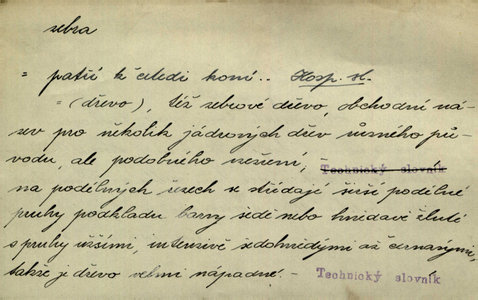 zebra
= patří k čeledi koní.. Hosp. sl.
= (dřevo), též zebrové dřevo, obchodní ná-
zev pro několik jádrových dřev různého pů-
vodu, ale podobného vzezření; Technický slovník
na podélných řezech se střídají širší podélné
pruhy podkladu barvy šedé nebo hnědavě žluté
s pruhy užšími, intensivě šedohnědými až černavými,
takže je dřevo velmi nápadné. - Technický slovník